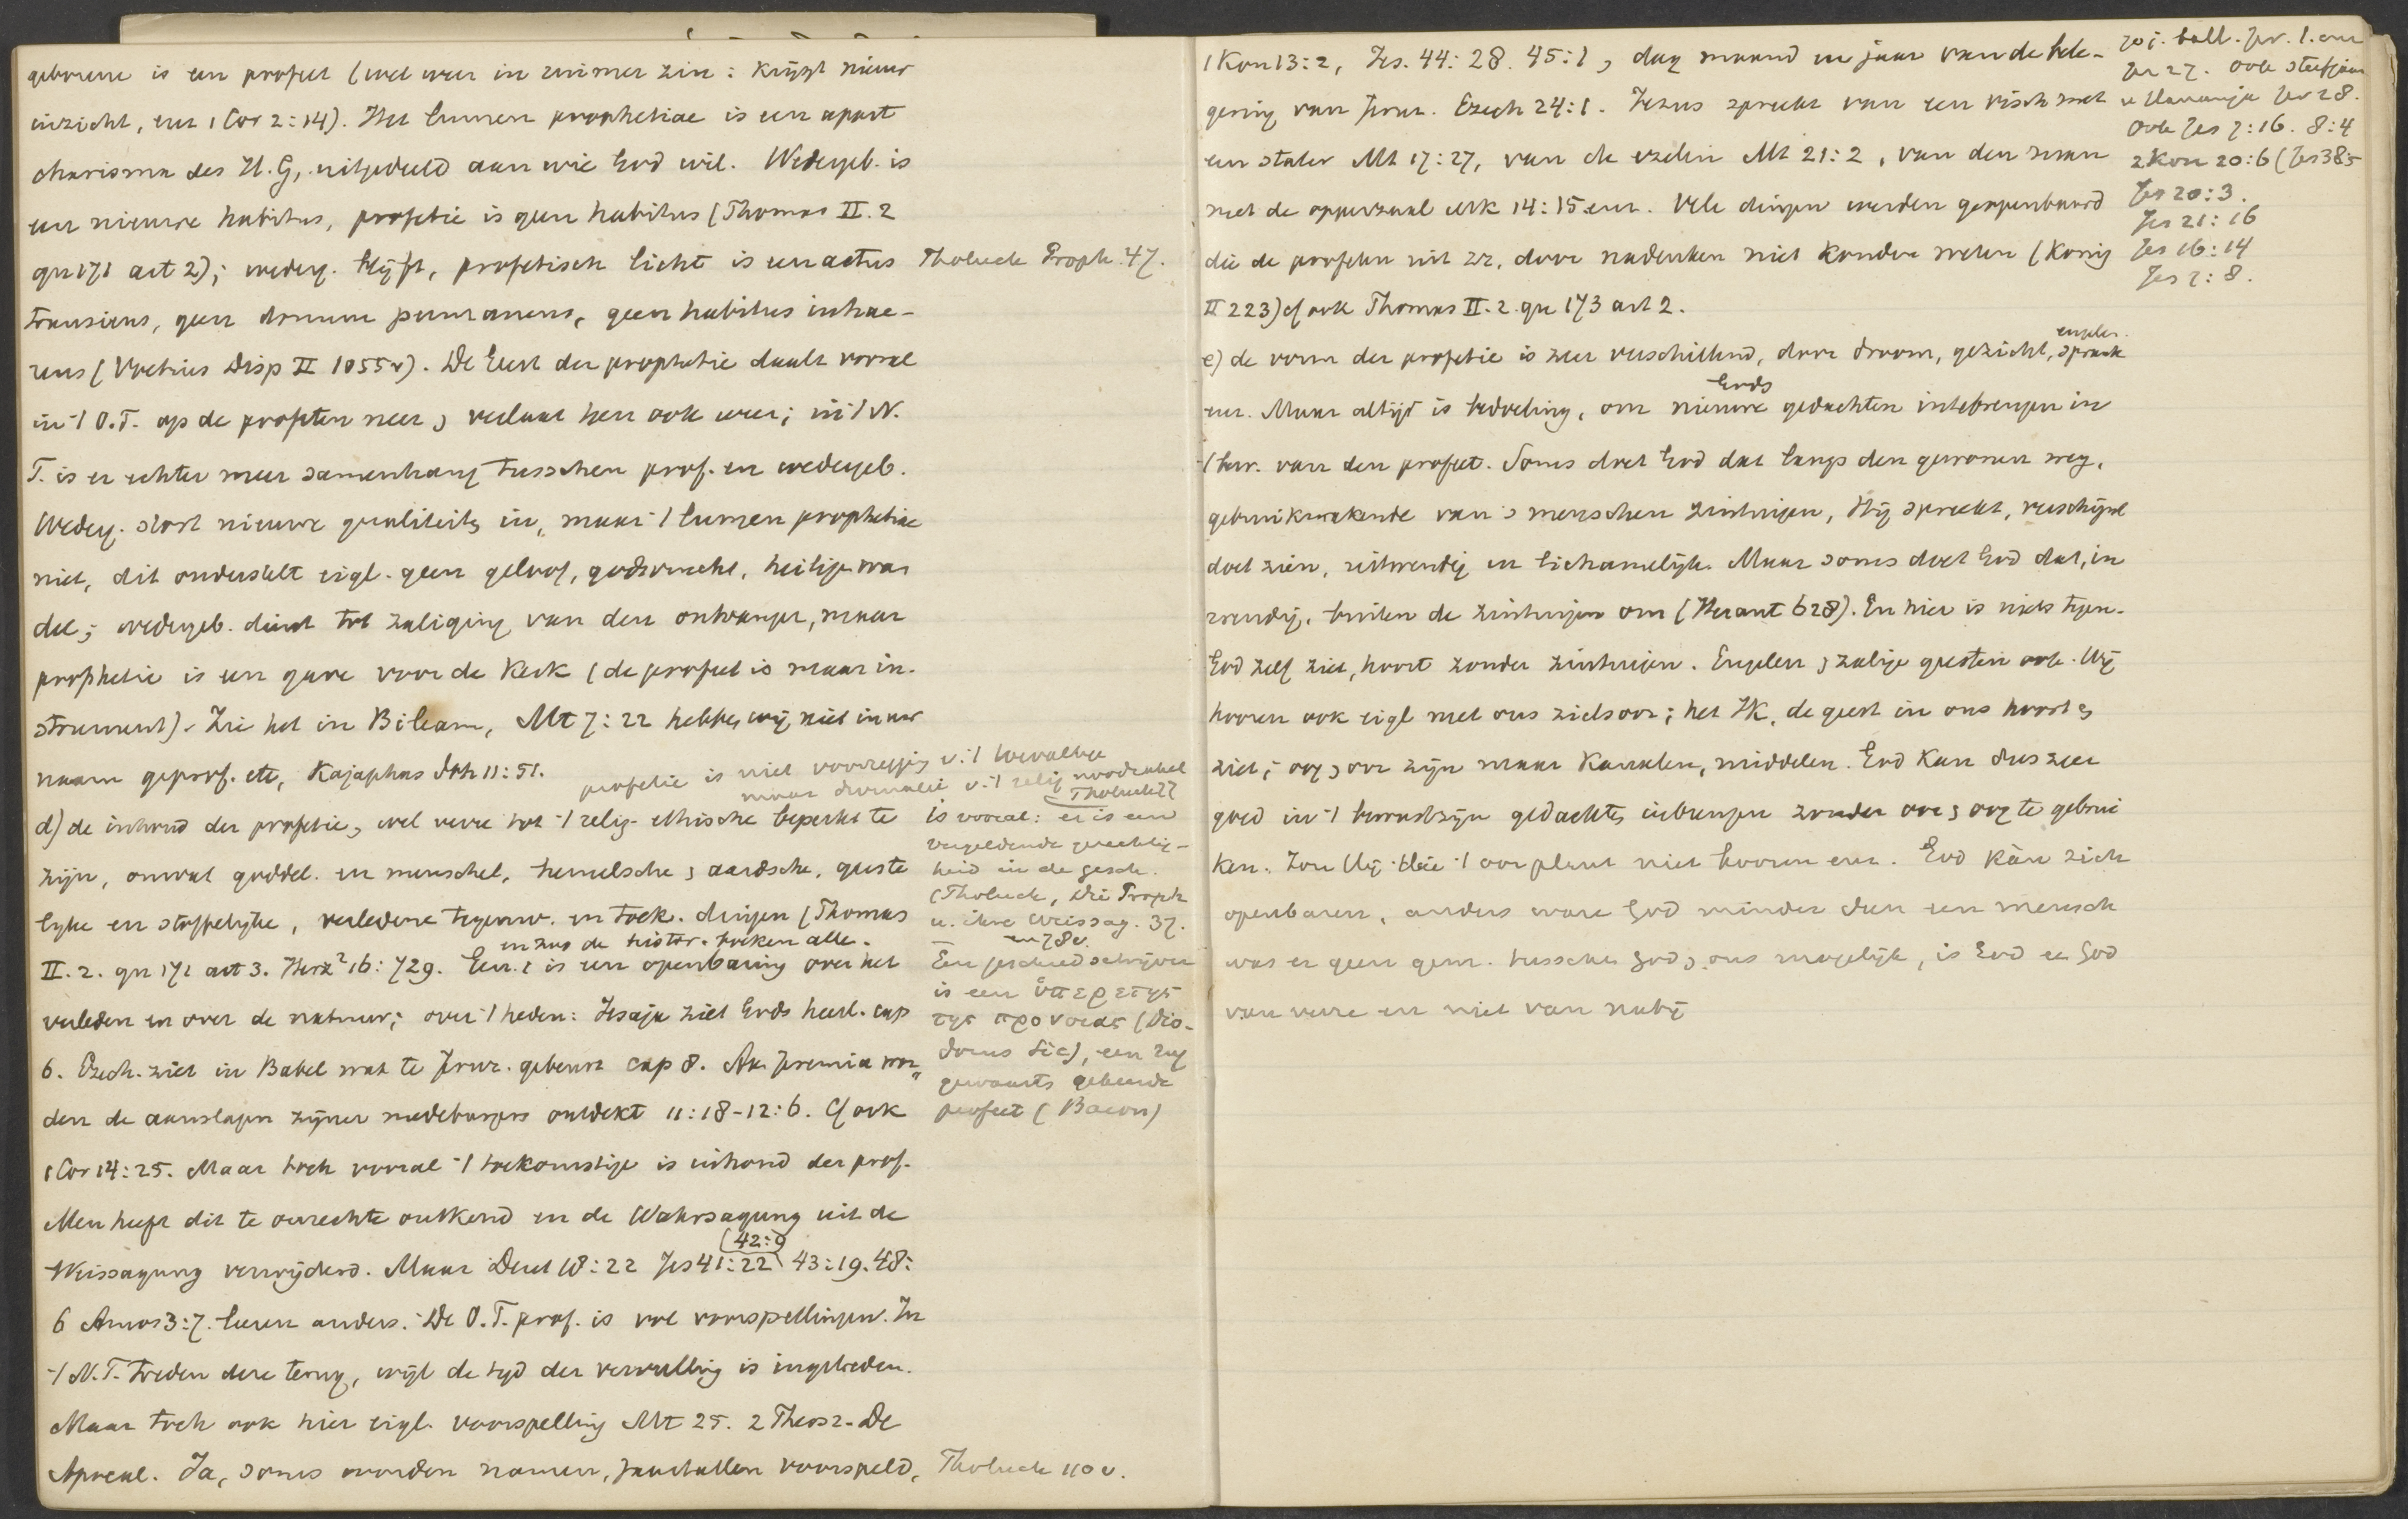 geborene is een profeet (wel weer in ruimer zin: krijgt nieuw
inzicht, enz 1 Cor 2:14). Het lumen prophetiae is een apart
charisma des H.G, uitgedeeld aan wie God wil. Wedergeb. is
een nieuwe habitus, profetie is geen habitus (Thomas II.2
qu 171 art 2); wederg. blijft, profetisch licht is een actus
Tholuck Proph. 47.
transiens, geen donum permanens, geen habitus inhae-
rens (Voetius Disp II 1055v). De Geest der prophetie daalt vooral
in 't O.T. op de profeten neer, verlaat hen ook weer; in 't N.
T. is er echter meer samenhang tusschen prof. en wedergeb.
Wederg. stort nieuwe qualiteits in, maar 't lumen prophetiae
niet, dit onderstelt eigl. geen geloof, godsvrucht, heilige wan
del; wedergeb. dient tot zaliging van den ontvanger, maar
prophetie is een gave voor de Kerk (de profeet is maar in-
strument). Zie het in Bileam, Mt 7:22 hebben wij niet in uw
naam geprof. etc, Kajaphas Joh 11:51.
profetie is niet voorzegging v. 't toevallige
maar divinatie v. 't relig noodzakel
Tholuck 77
d) de inhoud der profetie, wel verre tot 't relig-ethische beperkt te
zijn, omvat goddel. en menschel, hemelsche, aardsche, geeste
lijke en stoffelijke, verledene tegenw. en toek. dingen (Thomas
II.2. qu 171 art 3. Herz² 16:729. Gen. 1 is een openbaring over het
en zoo de histor. boeken alle.
verleden en over de natuur; over 't heden: Jesaja ziet Gods heerl. cap
6. Ezech. ziet in Babel wat te Jeruz. gebeurt cap 8. Aan Jeremia wor
den de aanslagen zijner medeburgers ontdekt 11:18-12:6. Cf ook
1 Cor 14:25. Maar toch vooral 't toekomstige is inhoud der prof.
Men heeft dit te onrechte ontkend en de Wahrsagung uit de
Weissagung verwijderd. Maar Deut 18:22 Jes 41:22 43:19. 48:
(42:9)
6 Amos 3:7. leeren anders. De O.T. prof. is vol voorspellingen. In
't N.T. treden deze terug, wijl de tijd der vervulling is ingetreden.
Maar toch ook hier eigl. voorspelling Mt 25. 2 Thess 2. De
Apocal. Ja, soms worden namen, jaartallen voorspeld,
Tholuck 110 v.
is vooral: er is een
vergeldende gerechtig-
heid in de gesch.
(Tholuck, Die Proph
u. ihre Weissag. 37.
en 78v.
Een geschiedschrijver
is een ὑπερετης
της προνοιας (Dio-
dorus Sic), een rug
gewaarts gekeerde
profeet (Bacon)
1 Kon 13:2, Jes. 44:28. 45:1, dag maand en jaar van de bele-
gering van Jeruz. Ezech 24:1. Jezus spreekt van een visch met
een stater Mt 17:27, van de ezelin Mt 21:2, van den man
met de opperzaal Mk 14:15 enz. Vele dingen werden geopenbaard
die de profeten uit zz. door nadenken niet konden weten (König
II 223) cf ook Thomas II.2. qu 173 art 2.
70 j. ball. Jer.
Jer 27. ook sterfjaar
v Hananja Jer 28.
ook Jes 7:16. 8:4
2 Kon 20:6 (Jes 38:5
Jes 20:3.
Jes 21:16
Jes 16:14
Jes 7:8.
e) de vorm der profetie is zeer verschillend, door droom, gezicht, spraak
engelen.
enz. Maar altijd is bedoeling, om nieuwe gedachten intebrengen in
Gods
't bew. van den profeet. Soms doet God dat langs den gewonen weg,
gebruikmakende van 's menschen zintuigen, Hij spreekt, verschijnt
doet zien, uitwendig en lichamelijk. Maar soms doet God dat, in
wendig, buiten de zintuigen om (Heraut 628). En hier is niets tegen.
God zelf ziet, hoort zonder zintuigen. Engelen, zalige geesten ook. Wij
hooren ook eigl met ons zielsoor; het Ik, de geest in ons hoort,
ziet; oog, oor zijn maar kanalen, middelen. God kan dus zeer
goed in 't bewustzijn gedachten inbrengen zonder oor, oog te gebrui
ken. Zou Hij die 't oor plant niet hooren enz. God kàn zich
openbaren, anders ware God minder dan een mensch
was er geen gem. tusschen God, ons mogelijk, is God een God
van verre en niet van nabij